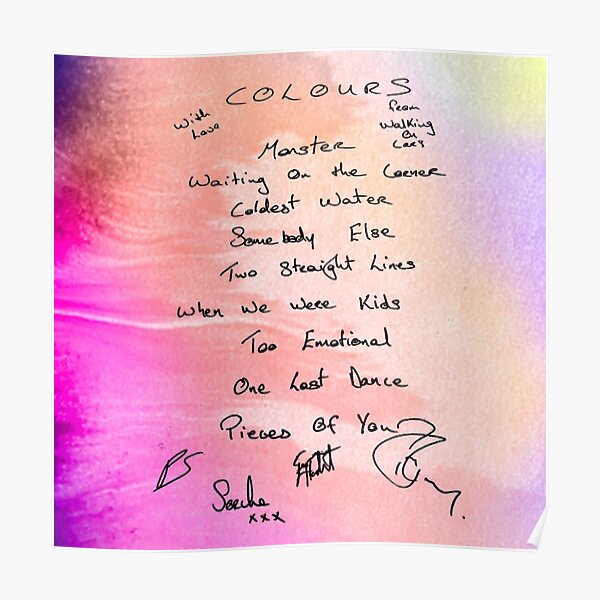 COLOURS
With Love
from Walking On Cars
Monster
Waiting On the Corner
Coldest Water
Somebody Else
Two Straight Lines
When We Were Kids
Too Emotional
One Last Dance
Pieces Of You
Sorcha
xxx